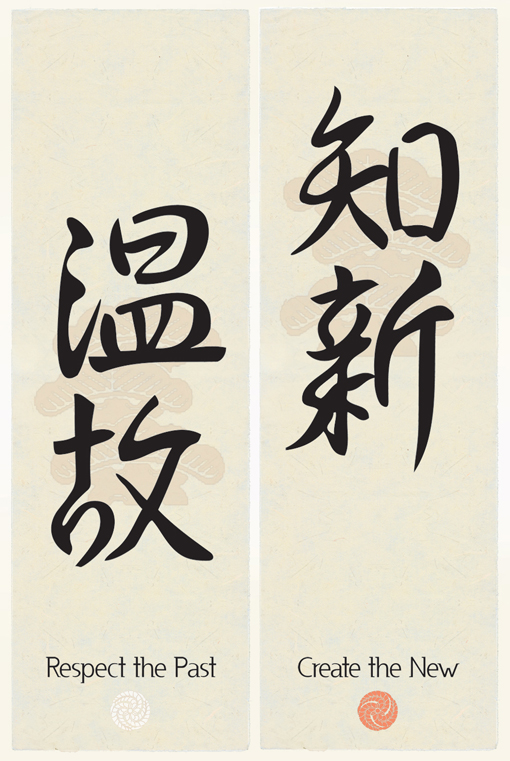 温故
Respect the Past
知新
Create the New